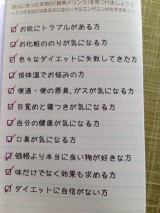 お肌にトラブルがある方
お化粧ののりが気になる方
色々なダイエットに失敗してきた方
低体温でお悩みの方
便通・便の悪臭、ガスが気になる方
目覚めと寝つきが気になる方
自分の健康が気になる方
口臭が気になる方
価格より本当に良い物が好きな方
味だけでなく効果も求める方
ダイエットに自信がない方